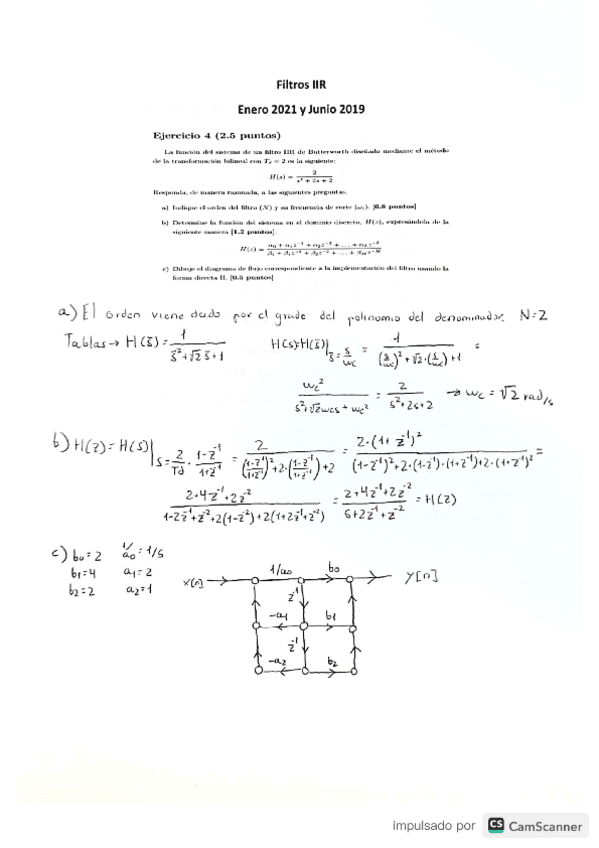 Filtros IIR
Enero 2021 y Junio 2019
Ejercicio 4 (2.5 puntos)
La función del sistema de un filtro IIR de Butterworth diseñado mediante el método
de la transformación bilineal con T_d = 2 es la siguiente:
H(s) = 2 / (s² + 2s + 2)
Responda, de manera razonada, a las siguientes preguntas.
a) Indique el orden del filtro (N) y su frecuencia de corte (ω_c). [0.8 puntos]
b) Determine la función del sistema en el dominio discreto, H(z), expresándola de la
siguiente manera [1.2 puntos]:
c) Dibuje el diagrama de flujo correspondiente a la implementación del filtro usando la
forma directa II. [0.5 puntos]
a) El orden viene dado por el grado del polinomio del denominador. N=2
Tablas → H(s̄) = 1 / (s̄² + √2 s̄ + 1) H(s)=H(s̄)|s̄=s/wc = 1 / ((s/wc)² + √2·(s/wc) + 1) =
wc² / (s² + √2wcs + wc²) = 2 / (s² + 2s + 2) → wc = √2 rad/s
b) H(z) = H(s)|s = 2/Td · (1-z⁻¹)/(1+z⁻¹) = 2 / (((1-z⁻¹)/(1+z⁻¹))² + 2·((1-z⁻¹)/(1+z⁻¹)) + 2) = 2·(1+z⁻¹)² / ((1-z⁻¹)² + 2·(1-z⁻¹)·(1+z⁻¹) + 2·(1+z⁻¹)²) =
2+4z⁻¹+2z⁻² / (1-2z⁻¹+z⁻²+2(1-z⁻²)+2(1+2z⁻¹+z⁻²)) = 2+4z⁻¹+2z⁻² / (5+2z⁻¹+z⁻²) = H(z)
c) b0=2 1/a0 = 1/5
b1=4 a1=2
b2=2 a2=1
x[n] 1/a0 b0 y[n]
z⁻¹
-a1 b1
z⁻¹
-a2 b2
impulsado por CS CamScanner